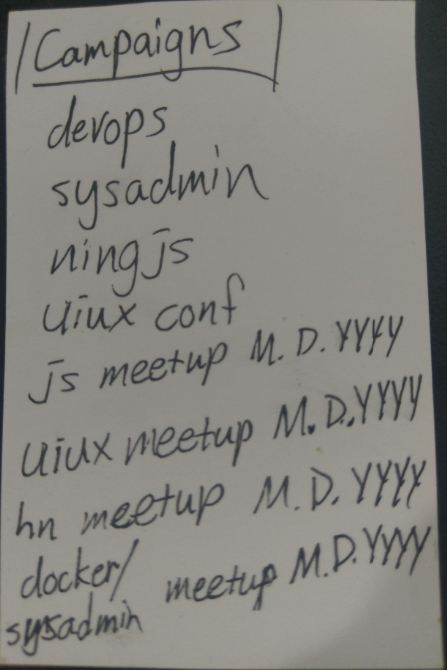 Campaigns
devops
sysadmin
ningjs
uiux conf
js meetup M.D.YYYY
uiux meetup M.D.YYYY
hn meetup M.D.YYYY
docker/
sysadmin meetup M.D.YYYY